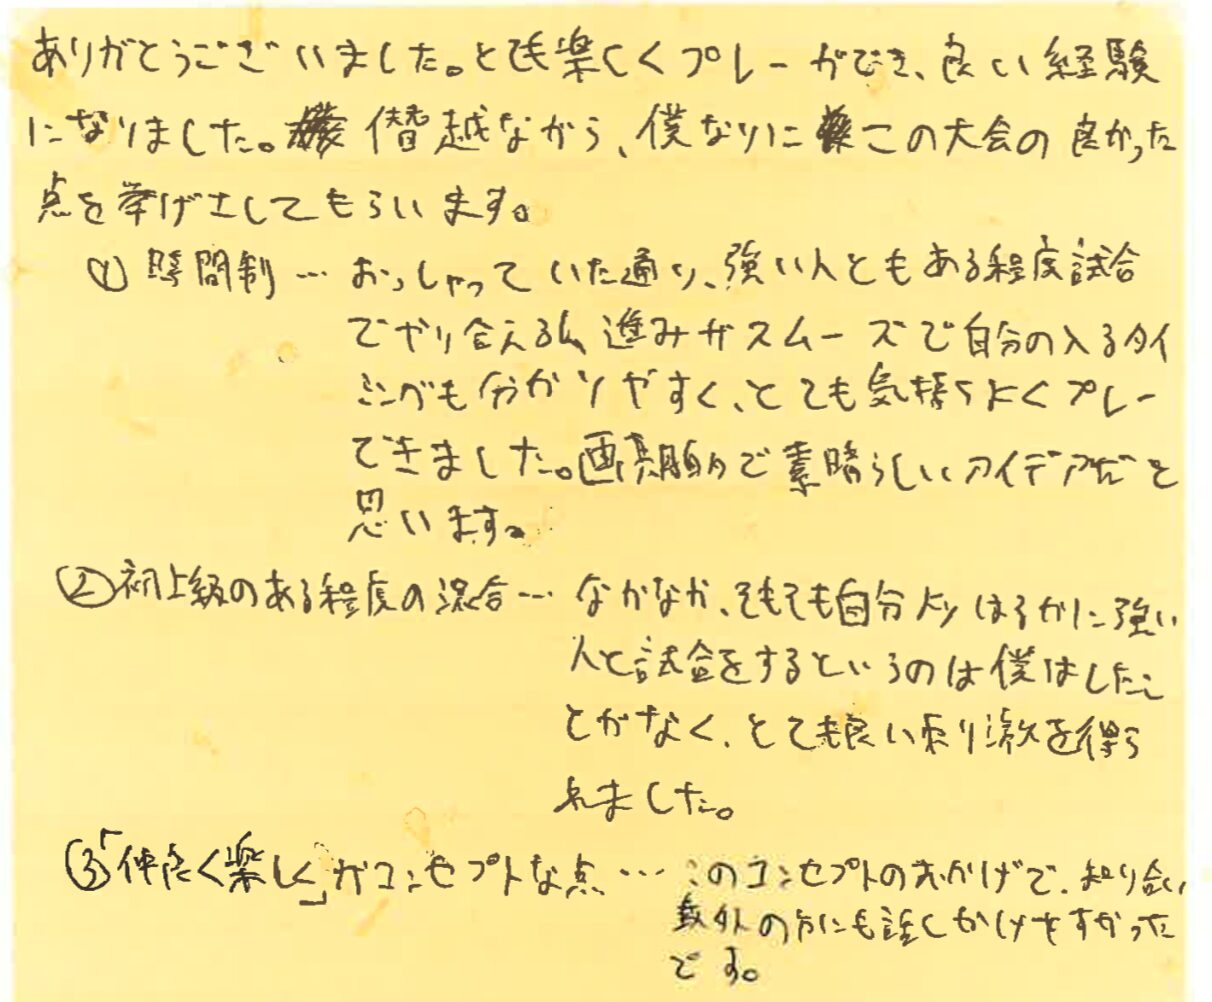 ありがとうございました。とても楽しくプレーができ、良い経験
になりました。僭越ながら、僕なりにこの大会の良かった
点を挙げさしてもらいます。
① 時間制 … おっしゃっていた通り、強い人ともある程度試合
でやり合えるし、進みがスムーズで自分の入るタイ
ミングも分かりやすく、とても気持ちよくプレー
できました。画期的で素晴らしいアイデアだと
思います。
② 初上級のある程度の混合 … なかなか、そもそも自分よりはるかに強い
人と試合をするというのは僕はしたこ
とがなく、とても良い刺激を得ら
れました。
③「仲良く楽しく」がコンセプトな点 … このコンセプトのおかげで、知り合い
以外の方にも話しかけやすかった
です。